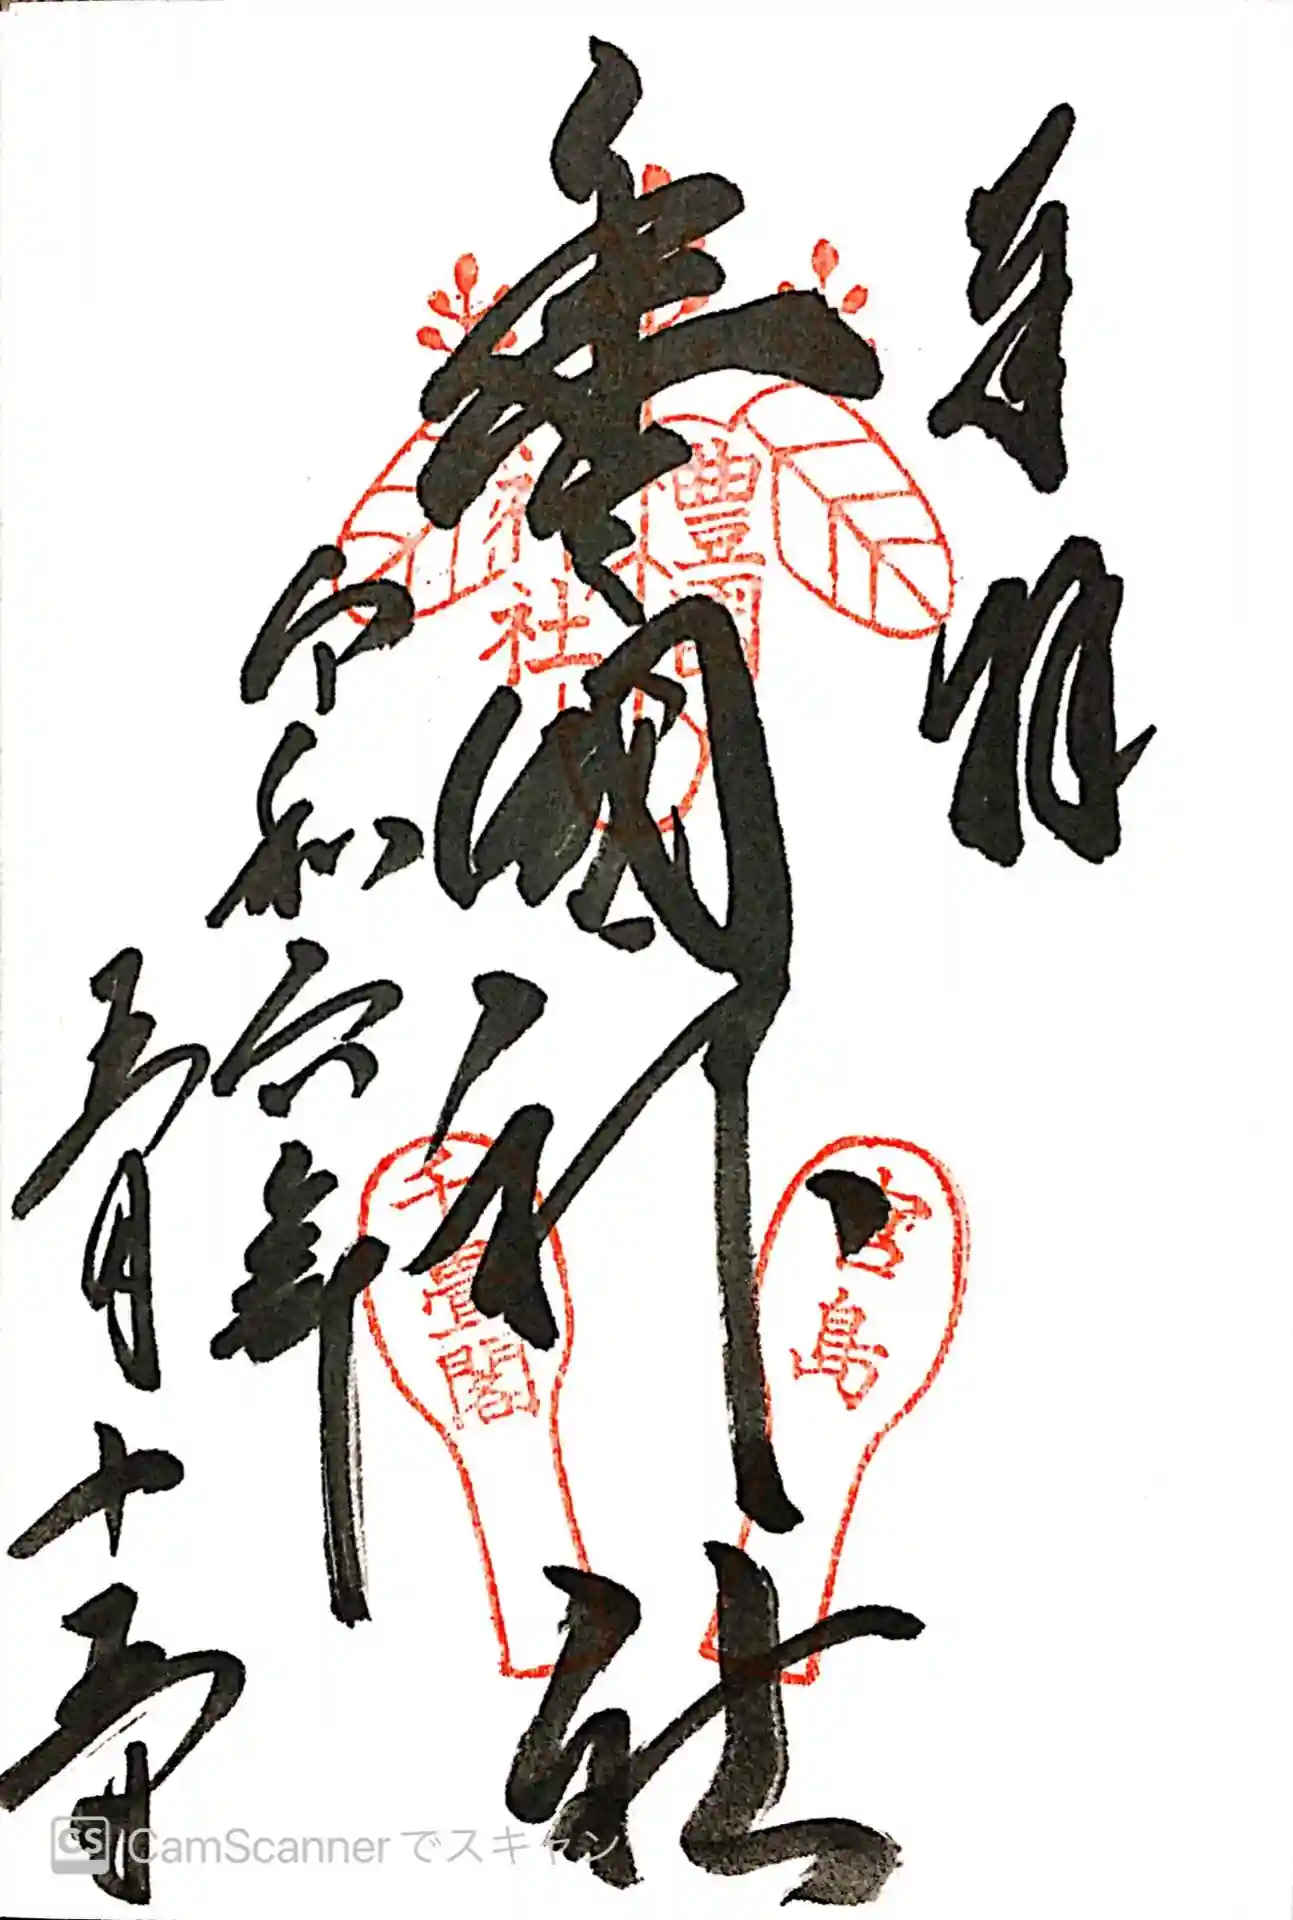 奉拝
豊国神社
令和六年
五月十五日
豊國
神社
宮島
千畳閣
CS CamScannerでスキャン